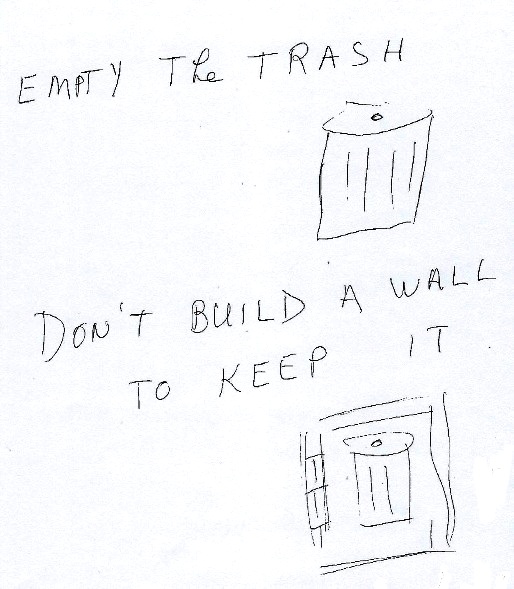 EMPTY The TRASH
DON'T BUILD A WALL
TO KEEP IT